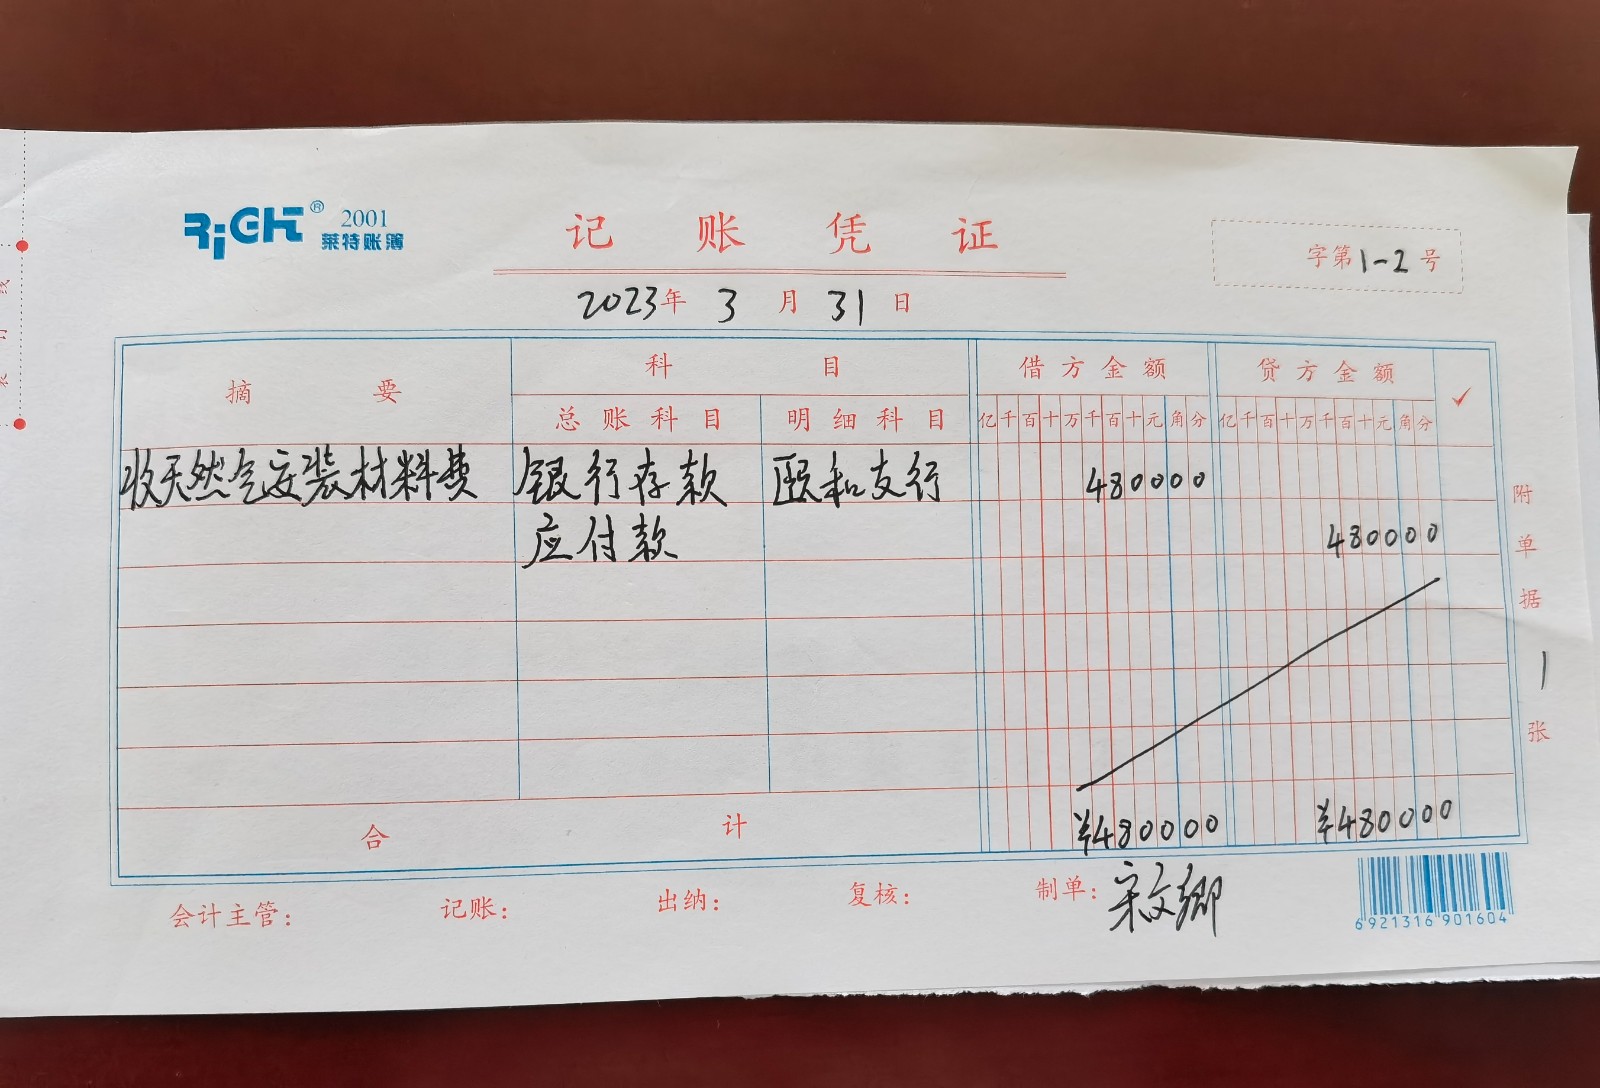 RiGHT® 2001
莱特账簿
记账凭证
字第1-2号
2023年3月31日
摘要 科目 借方金额 贷方金额 ✓
总账科目 明细科目 亿千百十万千百十元角分 亿千百十万千百十元角分
收天然气安装材料费 银行存款 颐和支行 480000
应付款 480000
附单据1张
合计 ¥480000 ¥480000
会计主管: 记账: 出纳: 复核: 制单:宋文乡
6921316901604